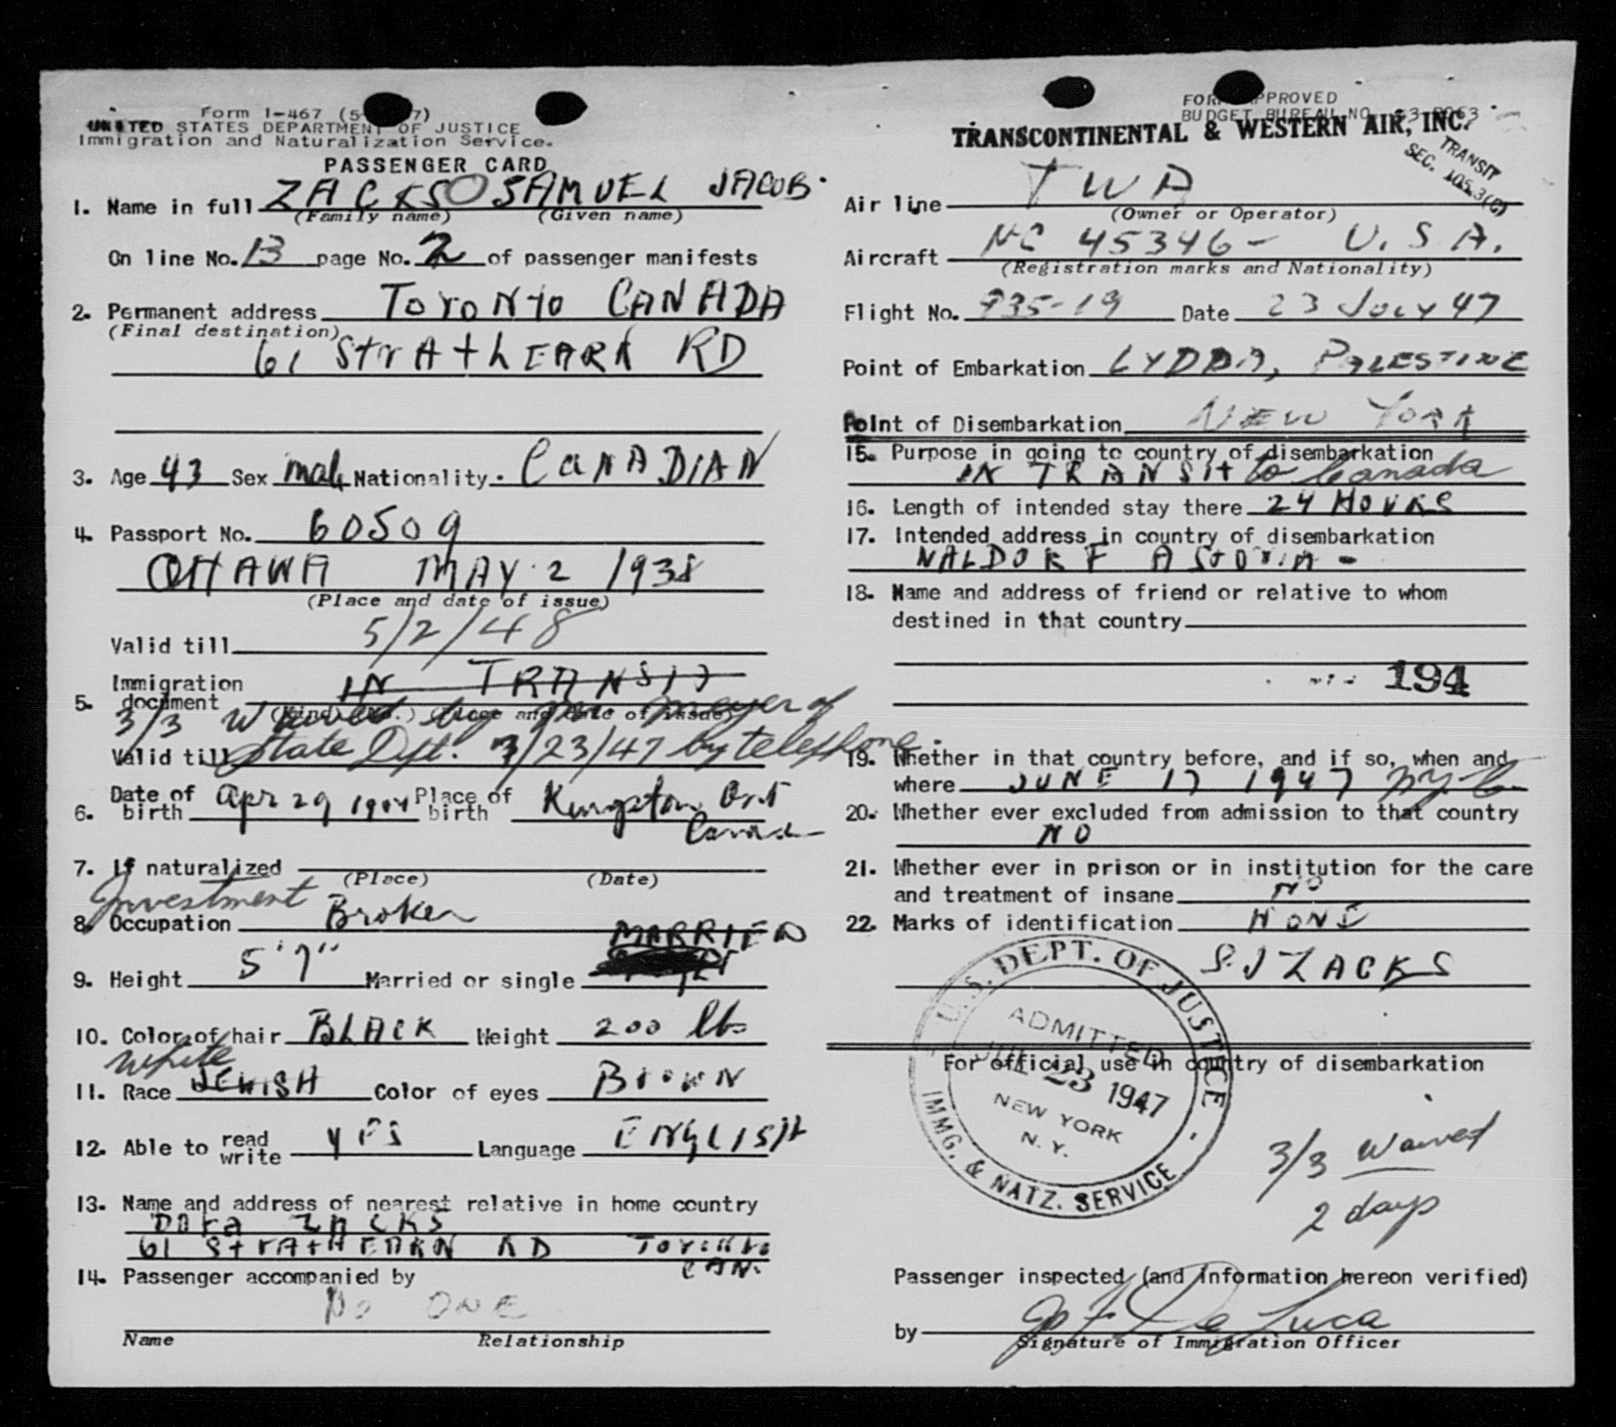 Form I-467 (5- 7)
UNITED STATES DEPARTMENT OF JUSTICE
Immigration and Naturalization Service.
PASSENGER CARD
1. Name in full ZACKS SAMUEL JACOB.
(Family name) (Given name)
On line No. 13 page No. 2 of passenger manifests
2. Permanent address Toronto CANADA
(Final destination)
61 StrAthEARN RD
3. Age 43 Sex male Nationality. CANADIAN
4. Passport No. 60509
OttAWA MAY 2 1938
(Place and date of issue)
Valid till 5/2/48
Immigration
5. document IN TRANSIT
(Kind, No.) (Place and date of issue)
3/3 Waived by Mr. Meyer of
Valid till State Dept. 7/23/47 by telephone.
6. Date of birth Apr 29 1904 Place of birth Kingston Ont
Canada
7. If naturalized
(Place) (Date)
Investment
8. Occupation Broker
MARRIED
9. Height 5'7" Married or single
10. Color of hair BLACK Weight 200 lbs
White
11. Race JEWISH Color of eyes BROWN
12. Able to read write YES Language ENGLISH
13. Name and address of nearest relative in home country
DORA ZACKS
61 StrAtHEARN RD Toronto
CAN.
14. Passenger accompanied by
No ONE
Name Relationship
FORM APPROVED
BUDGET BUREAU NO.
TRANSCONTINENTAL & WESTERN AIR, INC.
TRANSIT
SEC. 105.3(C)
Air line TWA
(Owner or Operator)
Aircraft NC 45346- U.S.A.
(Registration marks and Nationality)
Flight No. 935-19 Date 23 July 47
Point of Embarkation LYDDA, PALESTINE
Point of Disembarkation NEW YORK
15. Purpose in going to country of disembarkation
IN TRANSIt to Canada
16. Length of intended stay there 24 HOURS
17. Intended address in country of disembarkation
WALDORF AStORIA-
18. Name and address of friend or relative to whom
destined in that country
194
19. Whether in that country before, and if so, when and
where JUNE 17 1947 N.Y.C.
20. Whether ever excluded from admission to that country
NO
21. Whether ever in prison or in institution for the care
and treatment of insane NO
22. Marks of identification NONE
S.J ZACKS
For official use in country of disembarkation
U.S. DEPT. OF JUSTICE
ADMITTED
JUL 23 1947
NEW YORK
N.Y.
IMMG. & NATZ. SERVICE
3/3 Waived
2 days
Passenger inspected (and information hereon verified)
by Jos F De Luca
Signature of Immigration Officer